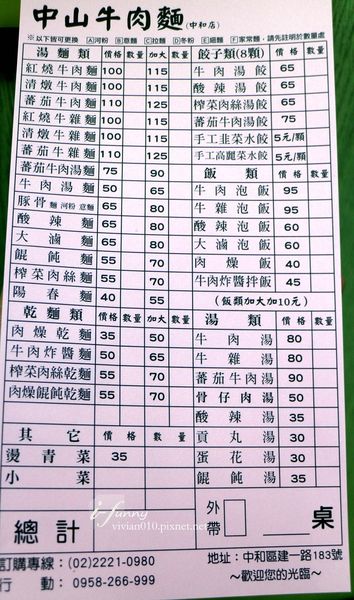 中山牛肉麵(中和店)
※以下皆可更換 Ⓐ河粉 Ⓑ意麵 Ⓒ拉麵 Ⓓ冬粉 Ⓔ細麵 Ⓕ家常麵，請先註明於數量處
湯麵類 價格 數量 加大 數量
紅燒牛肉麵 100 115
清燉牛肉麵 100 115
蕃茄牛肉麵 110 125
紅燒牛雜麵 100 115
清燉牛雜麵 100 115
蕃茄牛雜麵 110 125
蕃茄牛肉湯麵 75 90
牛肉湯麵 50 65
豚骨麵 麵 河粉 意麵 65 80
酸辣麵 65 80
大滷麵 65 80
餛飩麵 55 70
榨菜肉絲麵 55 70
陽春麵 40 55
乾麵類 價格 數量 加大 數量
肉燥乾麵 35 50
牛肉炸醬麵 50 65
榨菜肉絲乾麵 55 70
肉燥餛飩乾麵 55 70
其它 價格 數量
燙青菜 35
小菜
總計
餃子類(8顆) 價格 數量
牛肉湯餃 65
酸辣湯餃 65
榨菜肉絲湯餃 65
蕃茄牛肉湯餃 75
手工韭菜水餃 5元/顆
手工高麗菜水餃 5元/顆
飯類 價格 數量
牛肉泡飯 95
牛雜泡飯 95
酸辣泡飯 60
大滷泡飯 60
肉燥飯 40
牛肉炸醬拌飯 45
(飯類加大加10元)
湯類 價格 數量
牛肉湯 80
牛雜湯 80
蕃茄牛肉湯 90
骨仔肉湯 50
酸辣湯 35
貢丸湯 30
蛋花湯 30
餛飩湯 35
外帶 桌
i-funny
vivian010.pixnet.net
訂購專線：(02)2221-0980
行動：0958-266-999
地址：中和區建一路183號
～歡迎您的光臨～